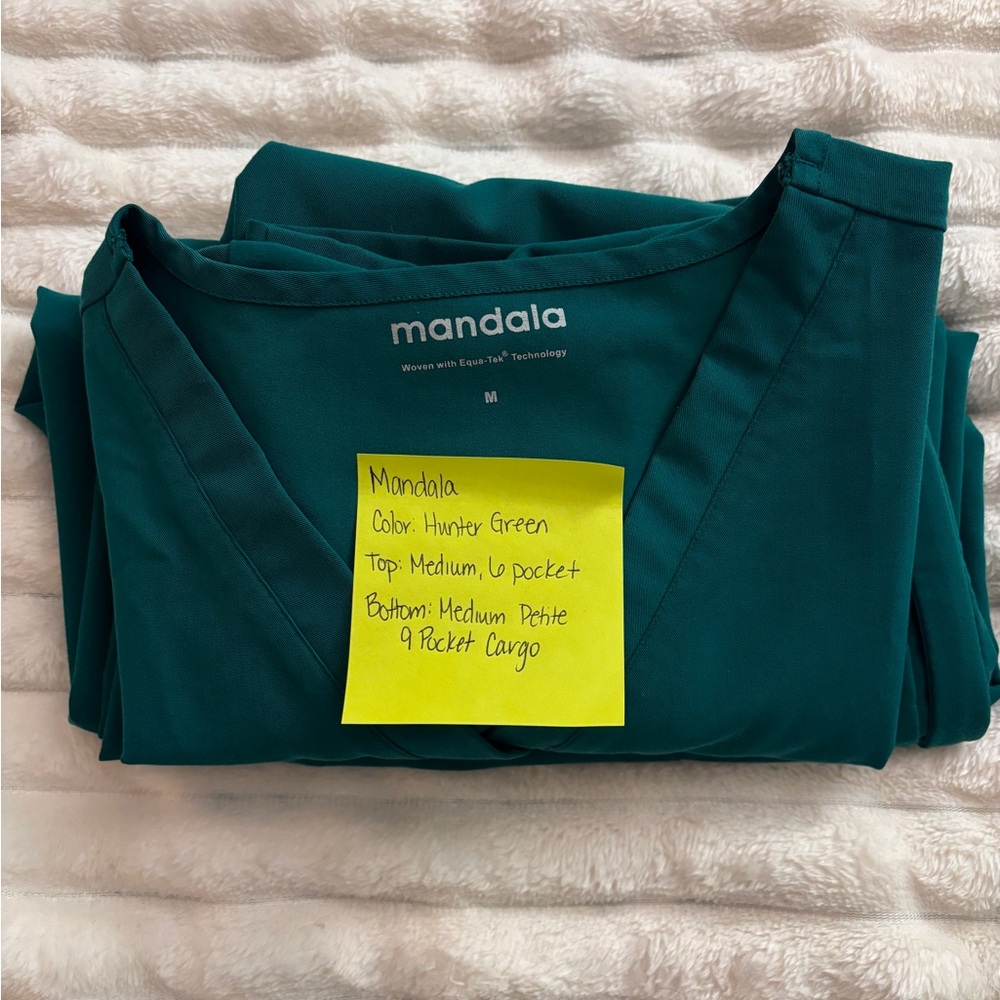 mandala
Woven with Equa-Tek® Technology
M
Mandala
Color: Hunter Green
Top: Medium, 6 pocket
Bottom: Medium Petite
9 Pocket Cargo